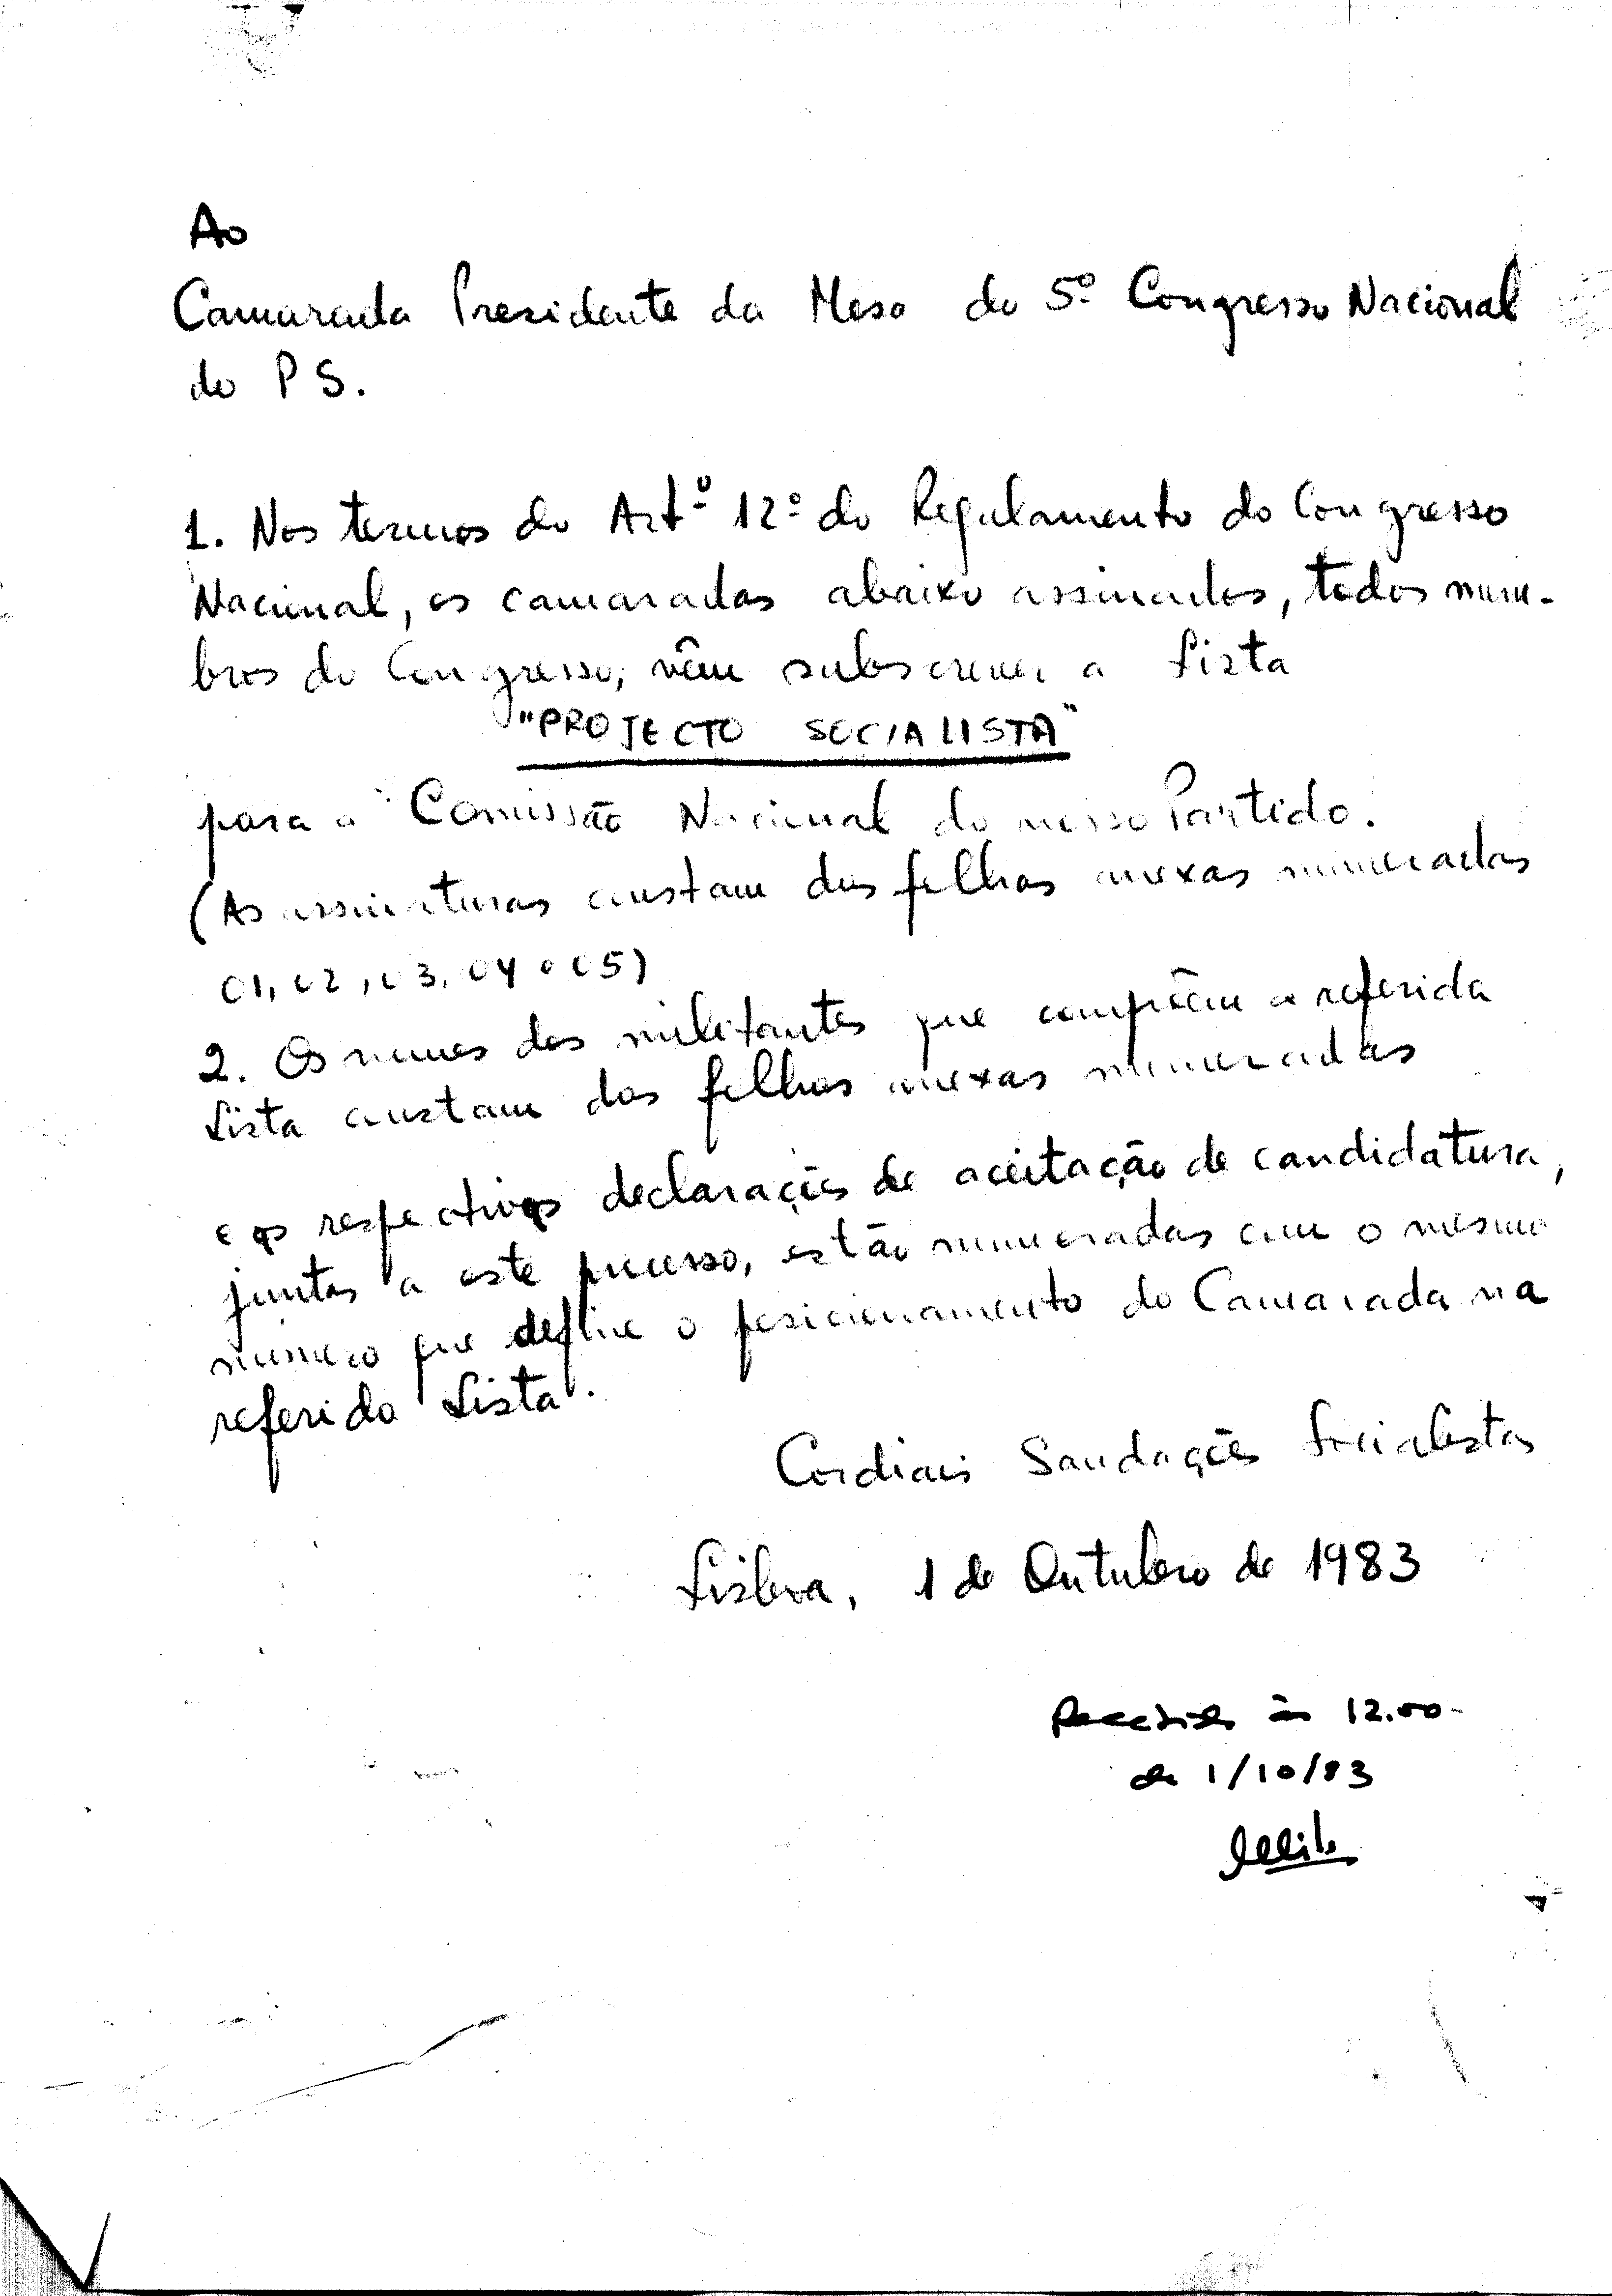 Ao
Camarada Presidente da Mesa do 5º Congresso Nacional
do PS.
1. Nos termos do Artº 12º do Regulamento do Congresso
Nacional, os camaradas abaixo assinados, todos mem-
bros do Congresso, vêm subscrever a Lista
"PROJECTO SOCIALISTA"
para a Comissão Nacional do nosso Partido.
(As assinaturas constam das folhas anexas numeradas
01, 02, 03, 04 e 05)
2. Os nomes dos militantes que compõem a referida
Lista constam das folhas anexas numeradas
e as respectivas declarações de aceitação de candidatura,
juntas a este processo, estão numeradas com o mesmo
número que define o posicionamento do Camarada na
referida Lista.
Cordiais Saudações Socialistas
Lisboa, 1 de Outubro de 1983
às 12.00
de 1/10/83